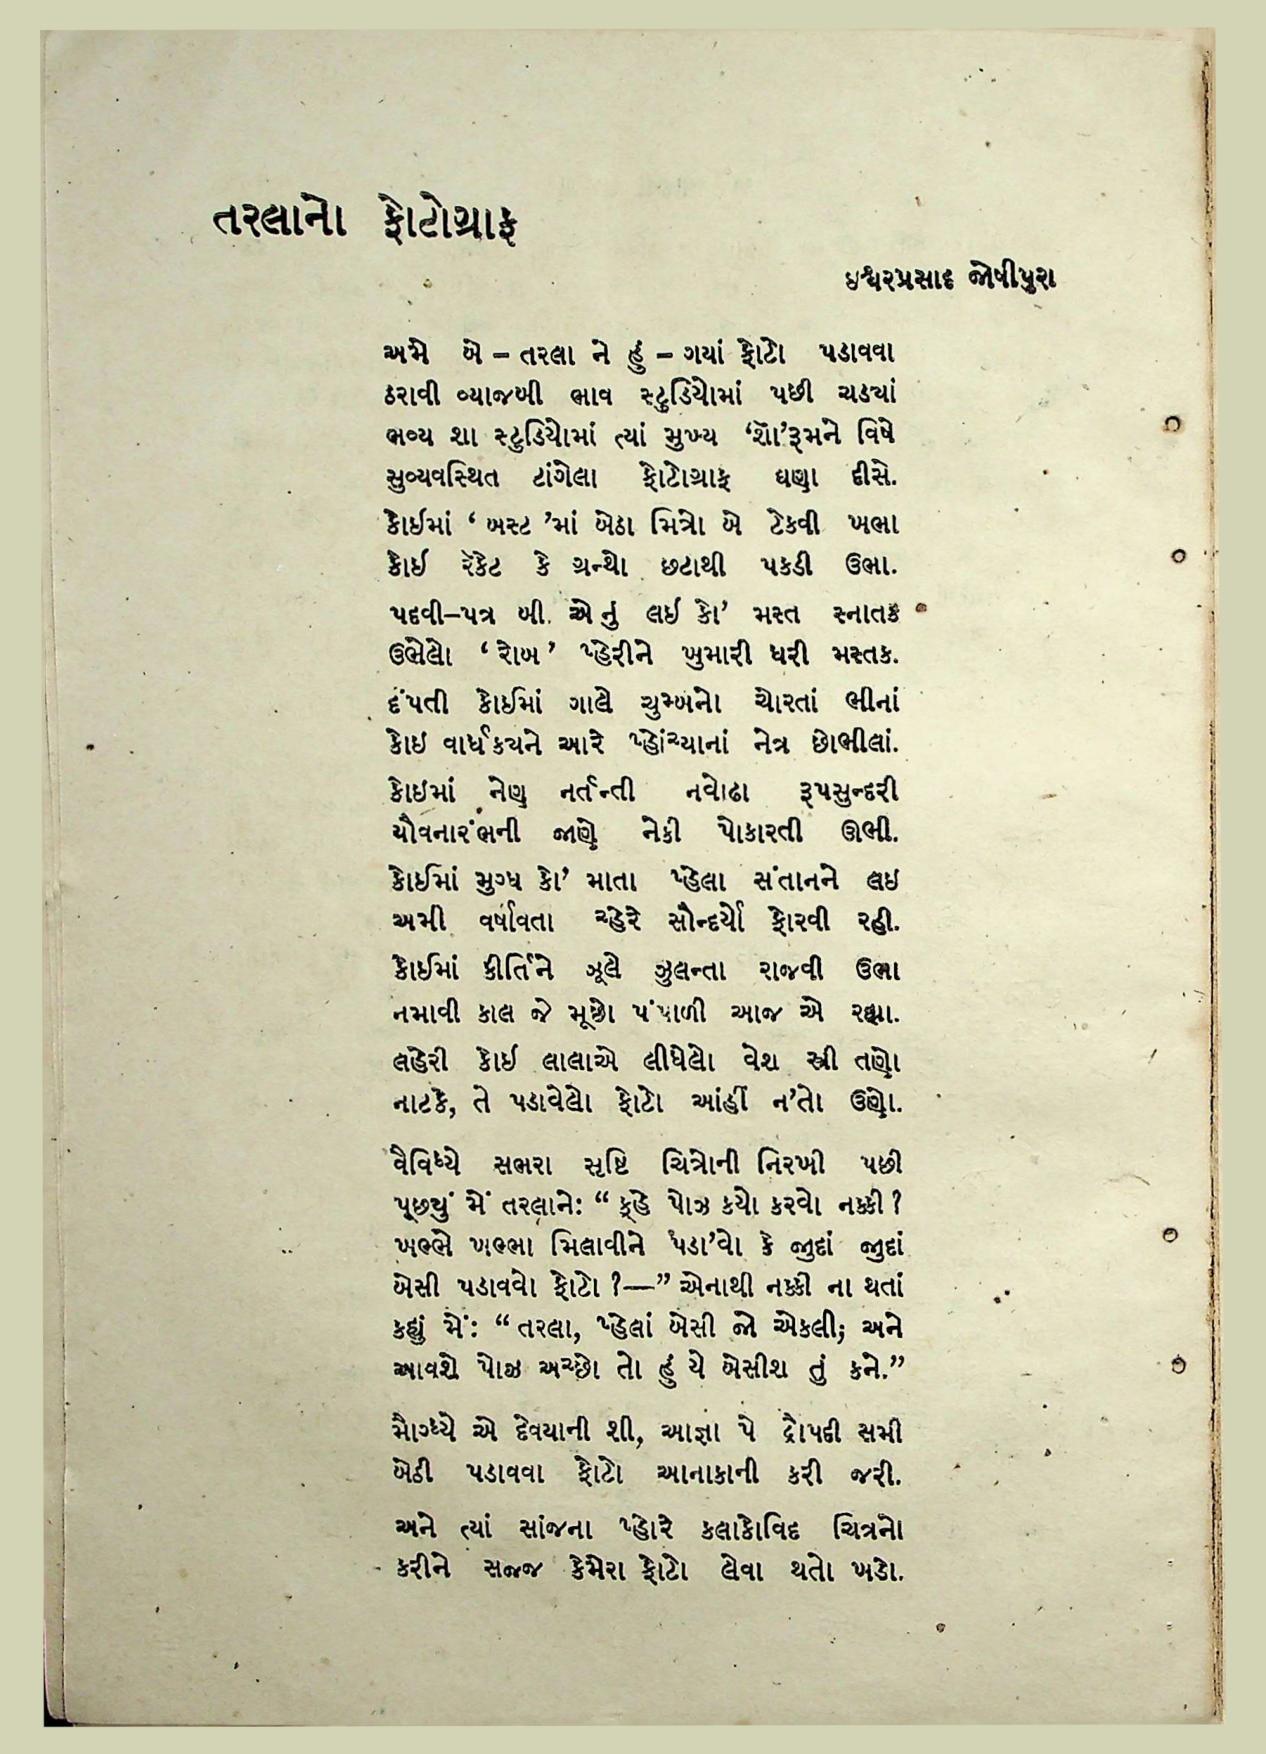 તરલાનો ફોટોગ્રાફ
ઇશ્વરપ્રસાદ જોષીપુરા
અમે બે – તરલા ને હું – ગયાં ફોટો પડાવવા
ઠરાવી વ્યાજબી ભાવ સ્ટુડિયોમાં પછી ચડ્યાં
ભવ્ય શા સ્ટુડિયોમાં ત્યાં મુખ્ય ‘શૉ’રૂમને વિષે
સુવ્યવસ્થિત ટાંગેલા ફોટોગ્રાફ ઘણા દીસે.
કોઈમાં ‘ બસ્ટ ’માં બેઠા મિત્રો બે ટેકવી ખભા
કોઈ રૅકેટ કે ગ્રન્થો છટાથી પકડી ઉભા.
પદવી–પત્ર બી. એ નું લઈ કો’ મસ્ત સ્નાતક
ઉભેલો ‘ રોબ ’ પ્હેરીને ખુમારી ધરી મસ્તક.
દંપતી કોઈમાં ગાલે ચુમ્બનો ચોરતાં ભીનાં
કોઇ વાર્ધક્યને આરે પ્હોંચ્યાનાં નેત્ર છોભીલાં.
કોઇમાં નેણ નર્તન્તી નવોઢા રૂપસુન્દરી
યૌવનારંભની જાણે નેકી પોકારતી ઊભી.
કોઈમાં મુગ્ધ કો’ માતા પ્હેલા સંતાનને લઇ
અમી વર્ષાવતા ચ્હેરે સૌન્દર્યો ફોરવી રહી.
કોઈમાં કીર્તિને ઝૂલે ઝુલન્તા રાજવી ઉભા
નમાવી કાલ જે મૂછો પંપાળી આજ એ રહ્યા.
લહેરી કોઈ લાલાએ લીધેલો વેશ સ્ત્રી તણો
નાટકે, તે પડાવેલો ફોટો આંહીં ન’તો ઉણો.
વૈવિધ્યે સભરા સૃષ્ટિ ચિત્રોની નિરખી પછી
પૂછ્યું મેં તરલાને: “ કહે પોઝ કયો કરવો નક્કી ?
ખભ્ભે ખભ્ભા મિલાવીને પડા’વો કે જુદાં જુદાં
બેસી પડાવવો ફોટો ?—” એનાથી નક્કી ના થતાં
કહ્યું મેં: “ તરલા, પ્હેલાં બેસી જો એકલી; અને
આવશે પોઝ અચ્છો તો હું યે બેસીશ તું કને.”
મૌગ્ધ્યે એ દેવયાની શી, આજ્ઞા પે દ્રૌપદી સમી
બેઠી પડાવવા ફોટો આનાકાની કરી જરી.
અને ત્યાં સાંજના પ્હોરે કલાકોવિદ ચિત્રનો
કરીને સજ્જ કેમેરા ફોટો લેવા થતો ખડો.